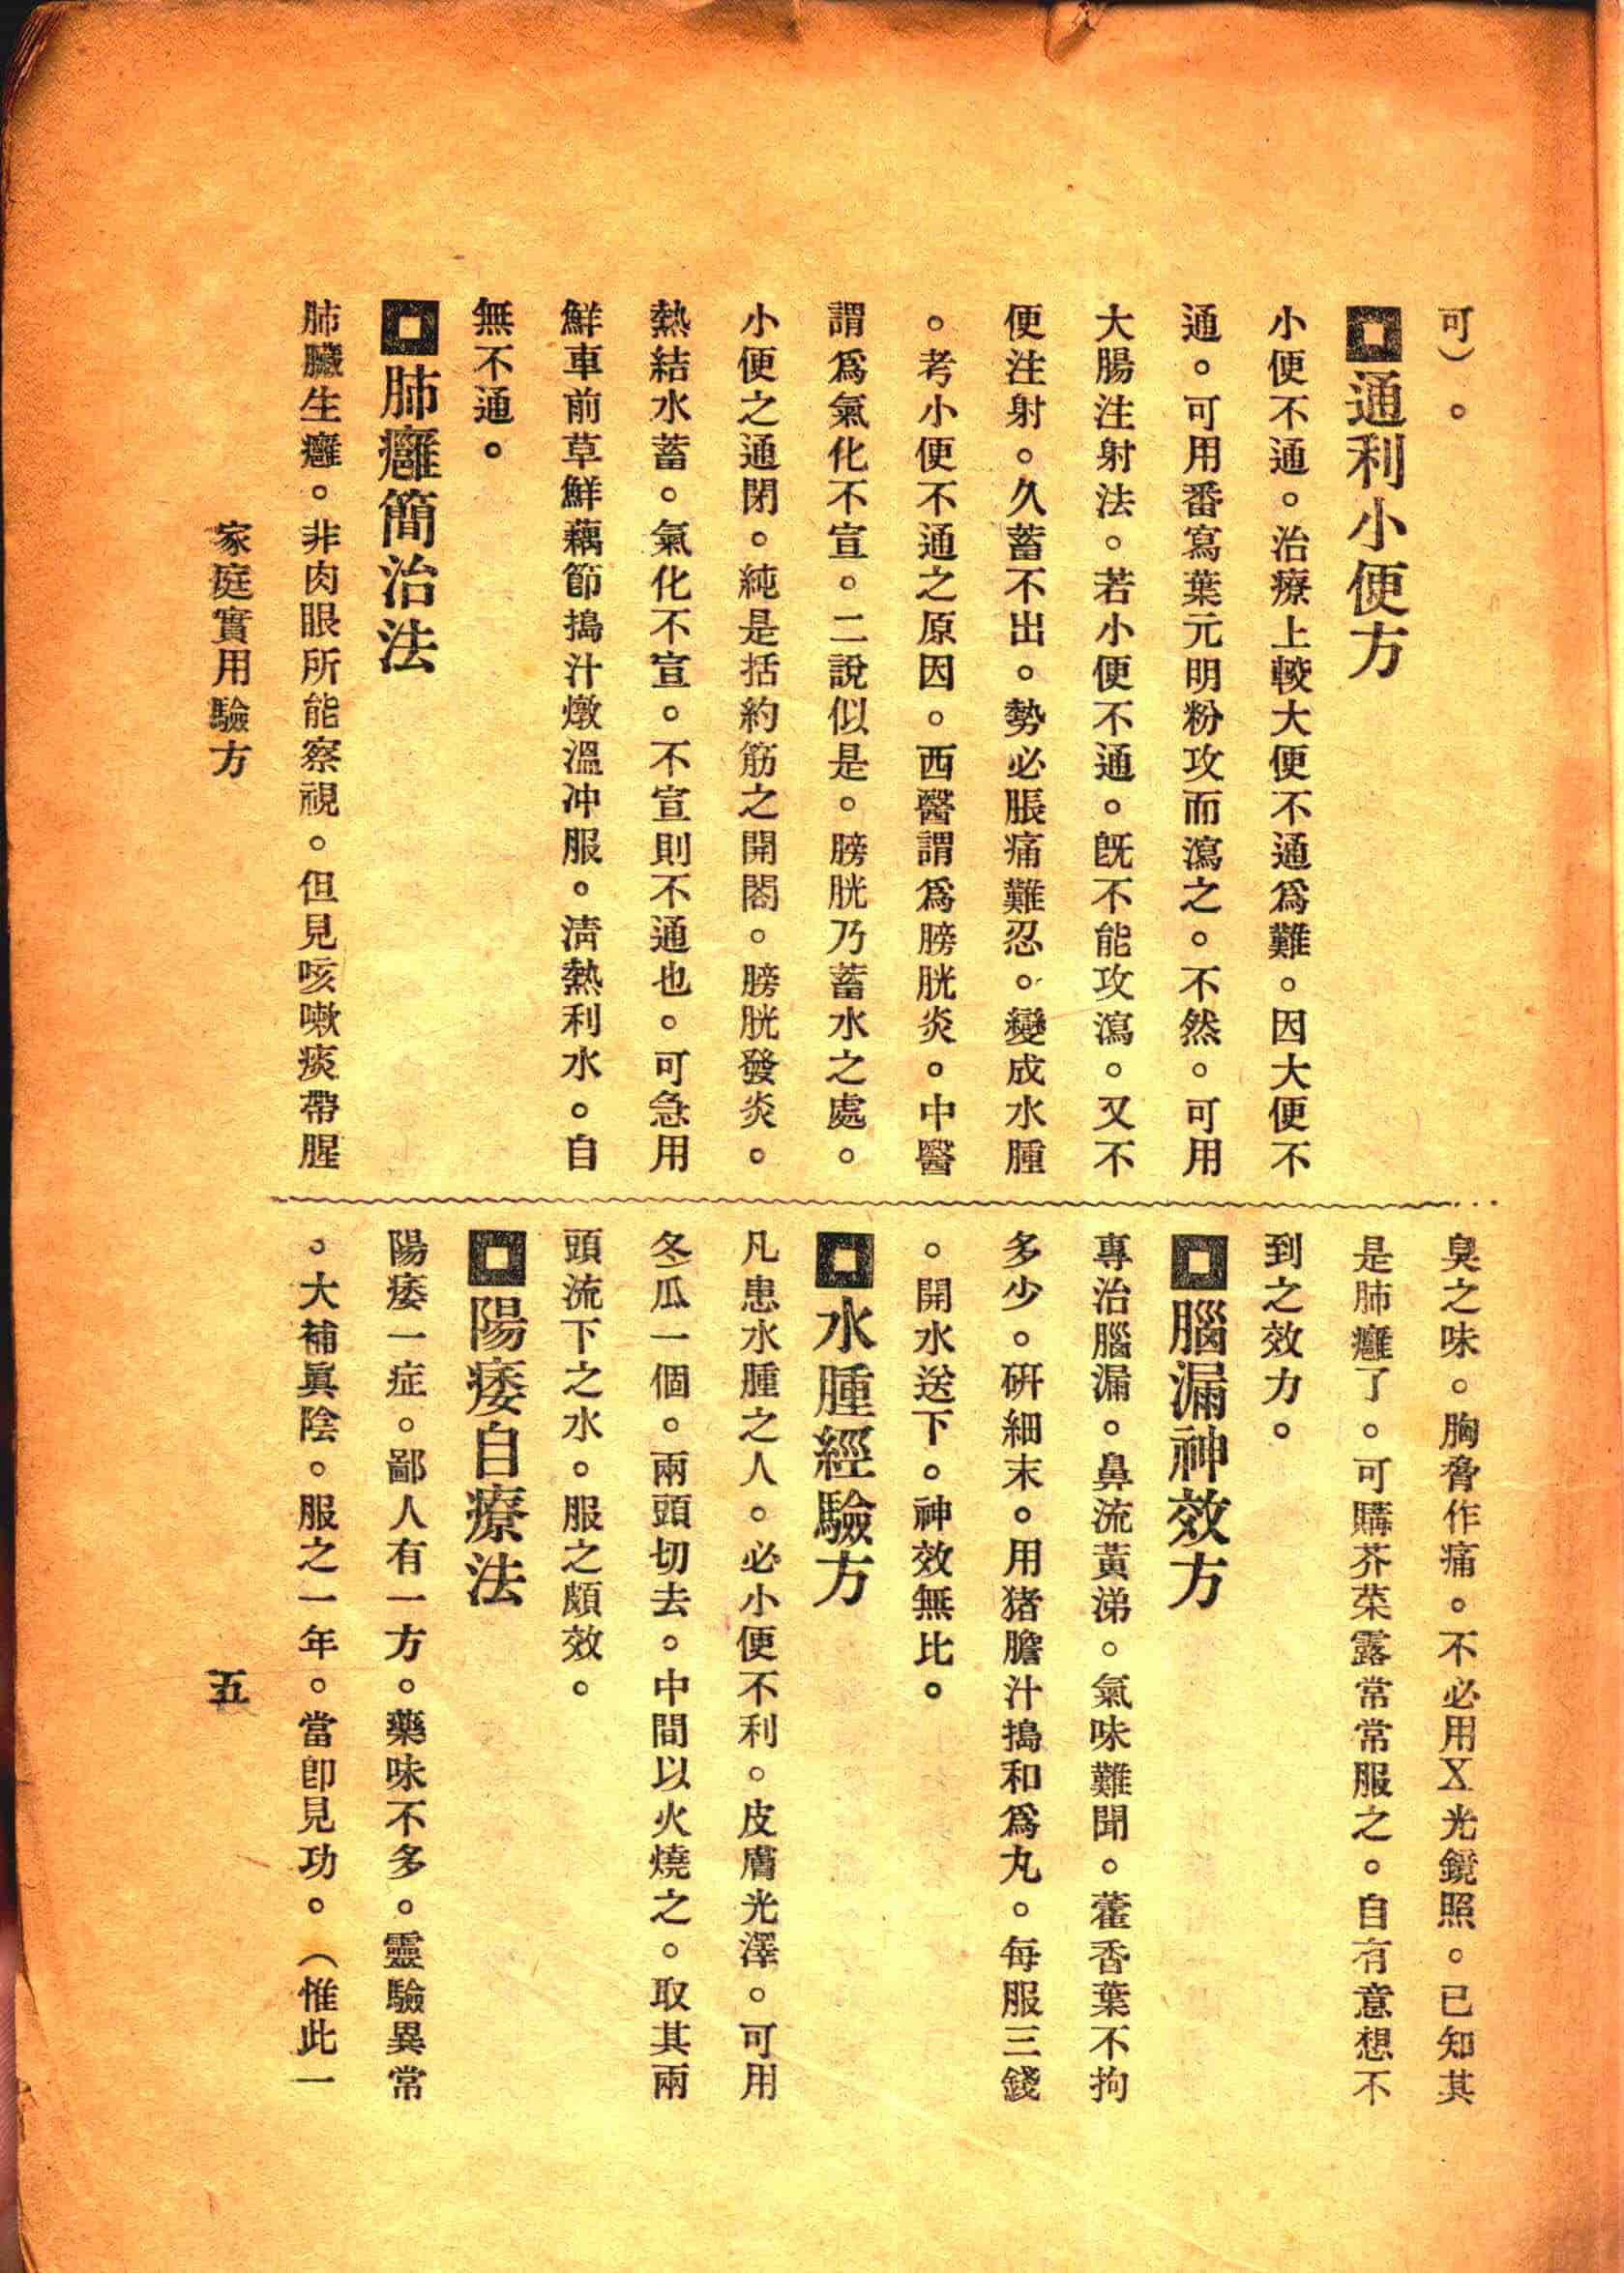 可）。
通利小便方
小便不通。治療上較大便不通爲難。因大便不
通。可用番寫葉元明粉攻而瀉之。不然。可用
大腸注射法。若小便不通。旣不能攻瀉。又不
便注射。久蓄不出。勢必脹痛難忍。變成水腫
。考小便不通之原因。西醫謂爲膀胱炎。中醫
謂爲氣化不宣。二說似是。膀胱乃蓄水之處。
小便之通閉。純是括約筋之開閤。膀胱發炎。
熱結水蓄。氣化不宣。不宣則不通也。可急用
鮮車前草鮮藕節搗汁燉溫冲服。淸熱利水。自
無不通。
肺癰簡治法
肺臟生癰。非肉眼所能察視。但見咳嗽痰帶腥
臭之味。胸脅作痛。不必用X光鏡照。已知其
是肺癰了。可購芥菜露常常服之。自有意想不
到之效力。
腦漏神效方
專治腦漏。鼻流黃涕。氣味難聞。藿香葉不拘
多少。研細末。用猪膽汁搗和爲丸。每服三錢
。開水送下。神效無比。
水腫經驗方
凡患水腫之人。必小便不利。皮膚光澤。可用
冬瓜一個。兩頭切去。中間以火燒之。取其兩
頭流下之水。服之頗效。
陽痿自療法
陽痿一症。鄙人有一方。藥味不多。靈驗異常
。大補眞陰。服之一年。當卽見功。（惟此一
家庭實用驗方
五